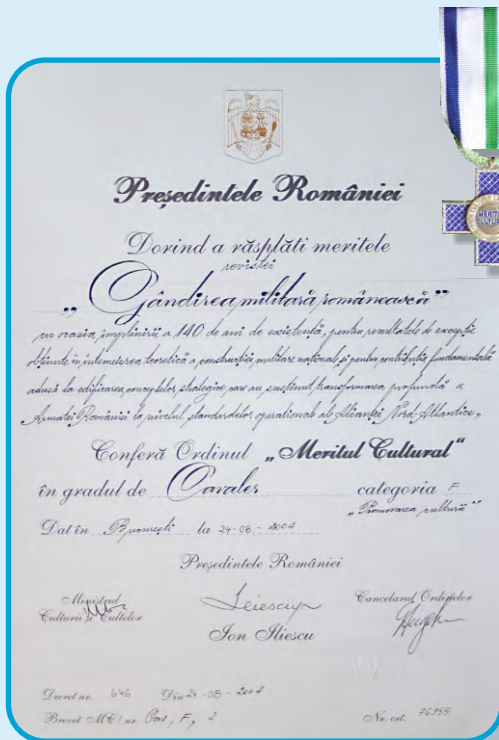 Președintele României
Dorind a răsplăti meritele
revistei
„Gândirea militară românească”
cu ocazia împlinirii a 140 de ani de existență, pentru rezultatele de excepție
obținute în întemeierea teoretică a construcției militare naționale și pentru contribuția fundamentală
adusă la edificarea conceptelor strategice care au susținut transformarea profundă a
Armatei României la nivelul standardelor operaționale ale Alianței Nord-Atlantice,
Conferă Ordinul „Meritul Cultural“
în gradul de Cavaler categoria F
„Promovarea culturii”
Dat în București la 24-08-2004
Președintele României
Ministrul Culturii și Cultelor
Cancelarul Ordinelor
Ion Iliescu
Decret nr. 646 Din 24-08-2004
Brevet MC/nr. Cav, F, 2 Nr. crt. 76955